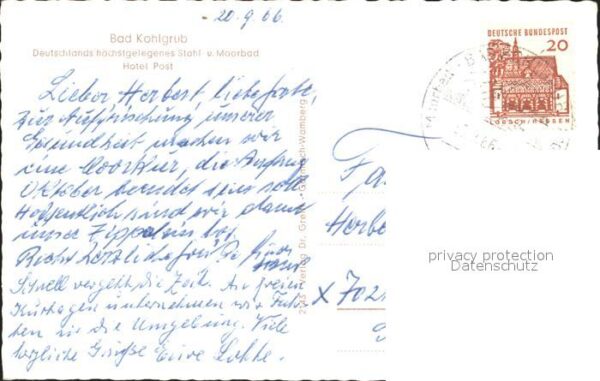 20.9.66.
Bad Kohlgrub
Deutschlands höchstgelegenes Stahl- u. Moorbad
Hotel Post
DEUTSCHE BUNDESPOST
20
LORSCH/HESSEN
Lieber Herbert, liebe
Zur Auffrischung unserer
Gesundheit machen wir
eine Moorkur, die Anfang
Oktober beendet sein soll.
Hoffentlich sind wir dann
unser Zipperlein los.
Recht herzliche Grüße
Schnell vergeht die Zeit. An freien
Kurtagen unternehmen wir Fahr-
ten in die Umgebung. Viele
herzliche Grüße Eure Lotte.
Verlag Dr.
Fa
Herbe
X 702
privacy protection
Datenschutz